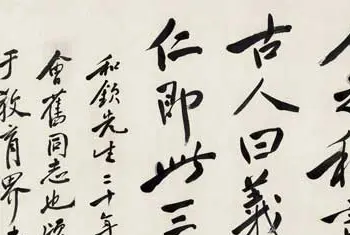 古人曰義
仁即此三
和欽先生二十年
會舊同志也頃
于教育界